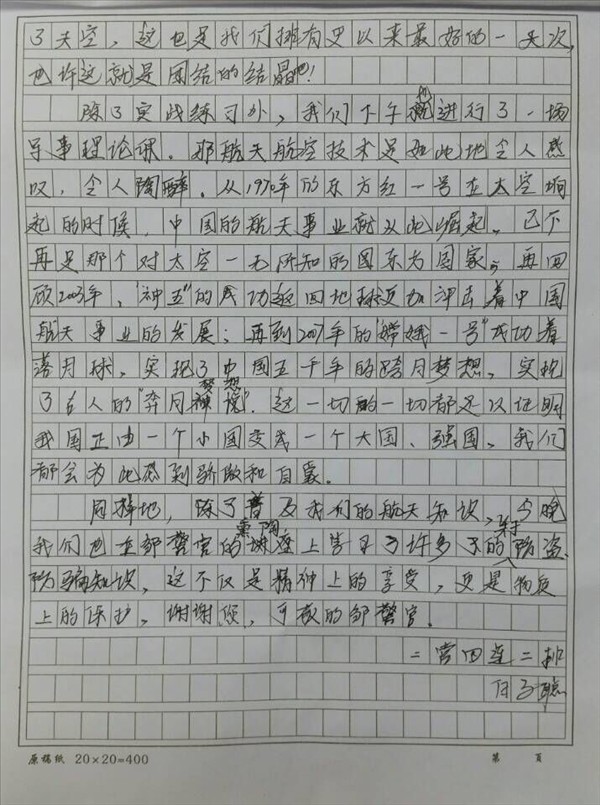 了天空，这也是我们拥有史以来最好的一天次，
也许这就是团结的结晶吧！
除了实战练习外，我们下午也进行了一场
军事理论课。那航天航空技术是如此地令人感
叹，令人陶醉。从1970年的东方红一号在太空响
起的时候，中国的航天事业就从此崛起。已不
再是那个对太空一无所知的国东方国家；再回
顾2003年，“神五”的成功返回地球更加冲击着中国
航天事业的发展；再到2007年的“嫦娥一号”成功着
落月球，实现了中国五千年的跨月梦想，实现
了古人的“奔月梦想”。这一切的一切都足以证明
我国正由一个小国变成一个大国、强国。我们
都会为此感到骄傲和自豪。
同样地，除了普及我们的航天知识，今晚
我们也在邹警官的熏陶上学习了许多关于的防盗、
防骗知识，这不仅是精神上的享受，更是物质
上的保护。谢谢您，可敬的邹警官。
二营四连二排
原稿纸 20×20=400 第 页